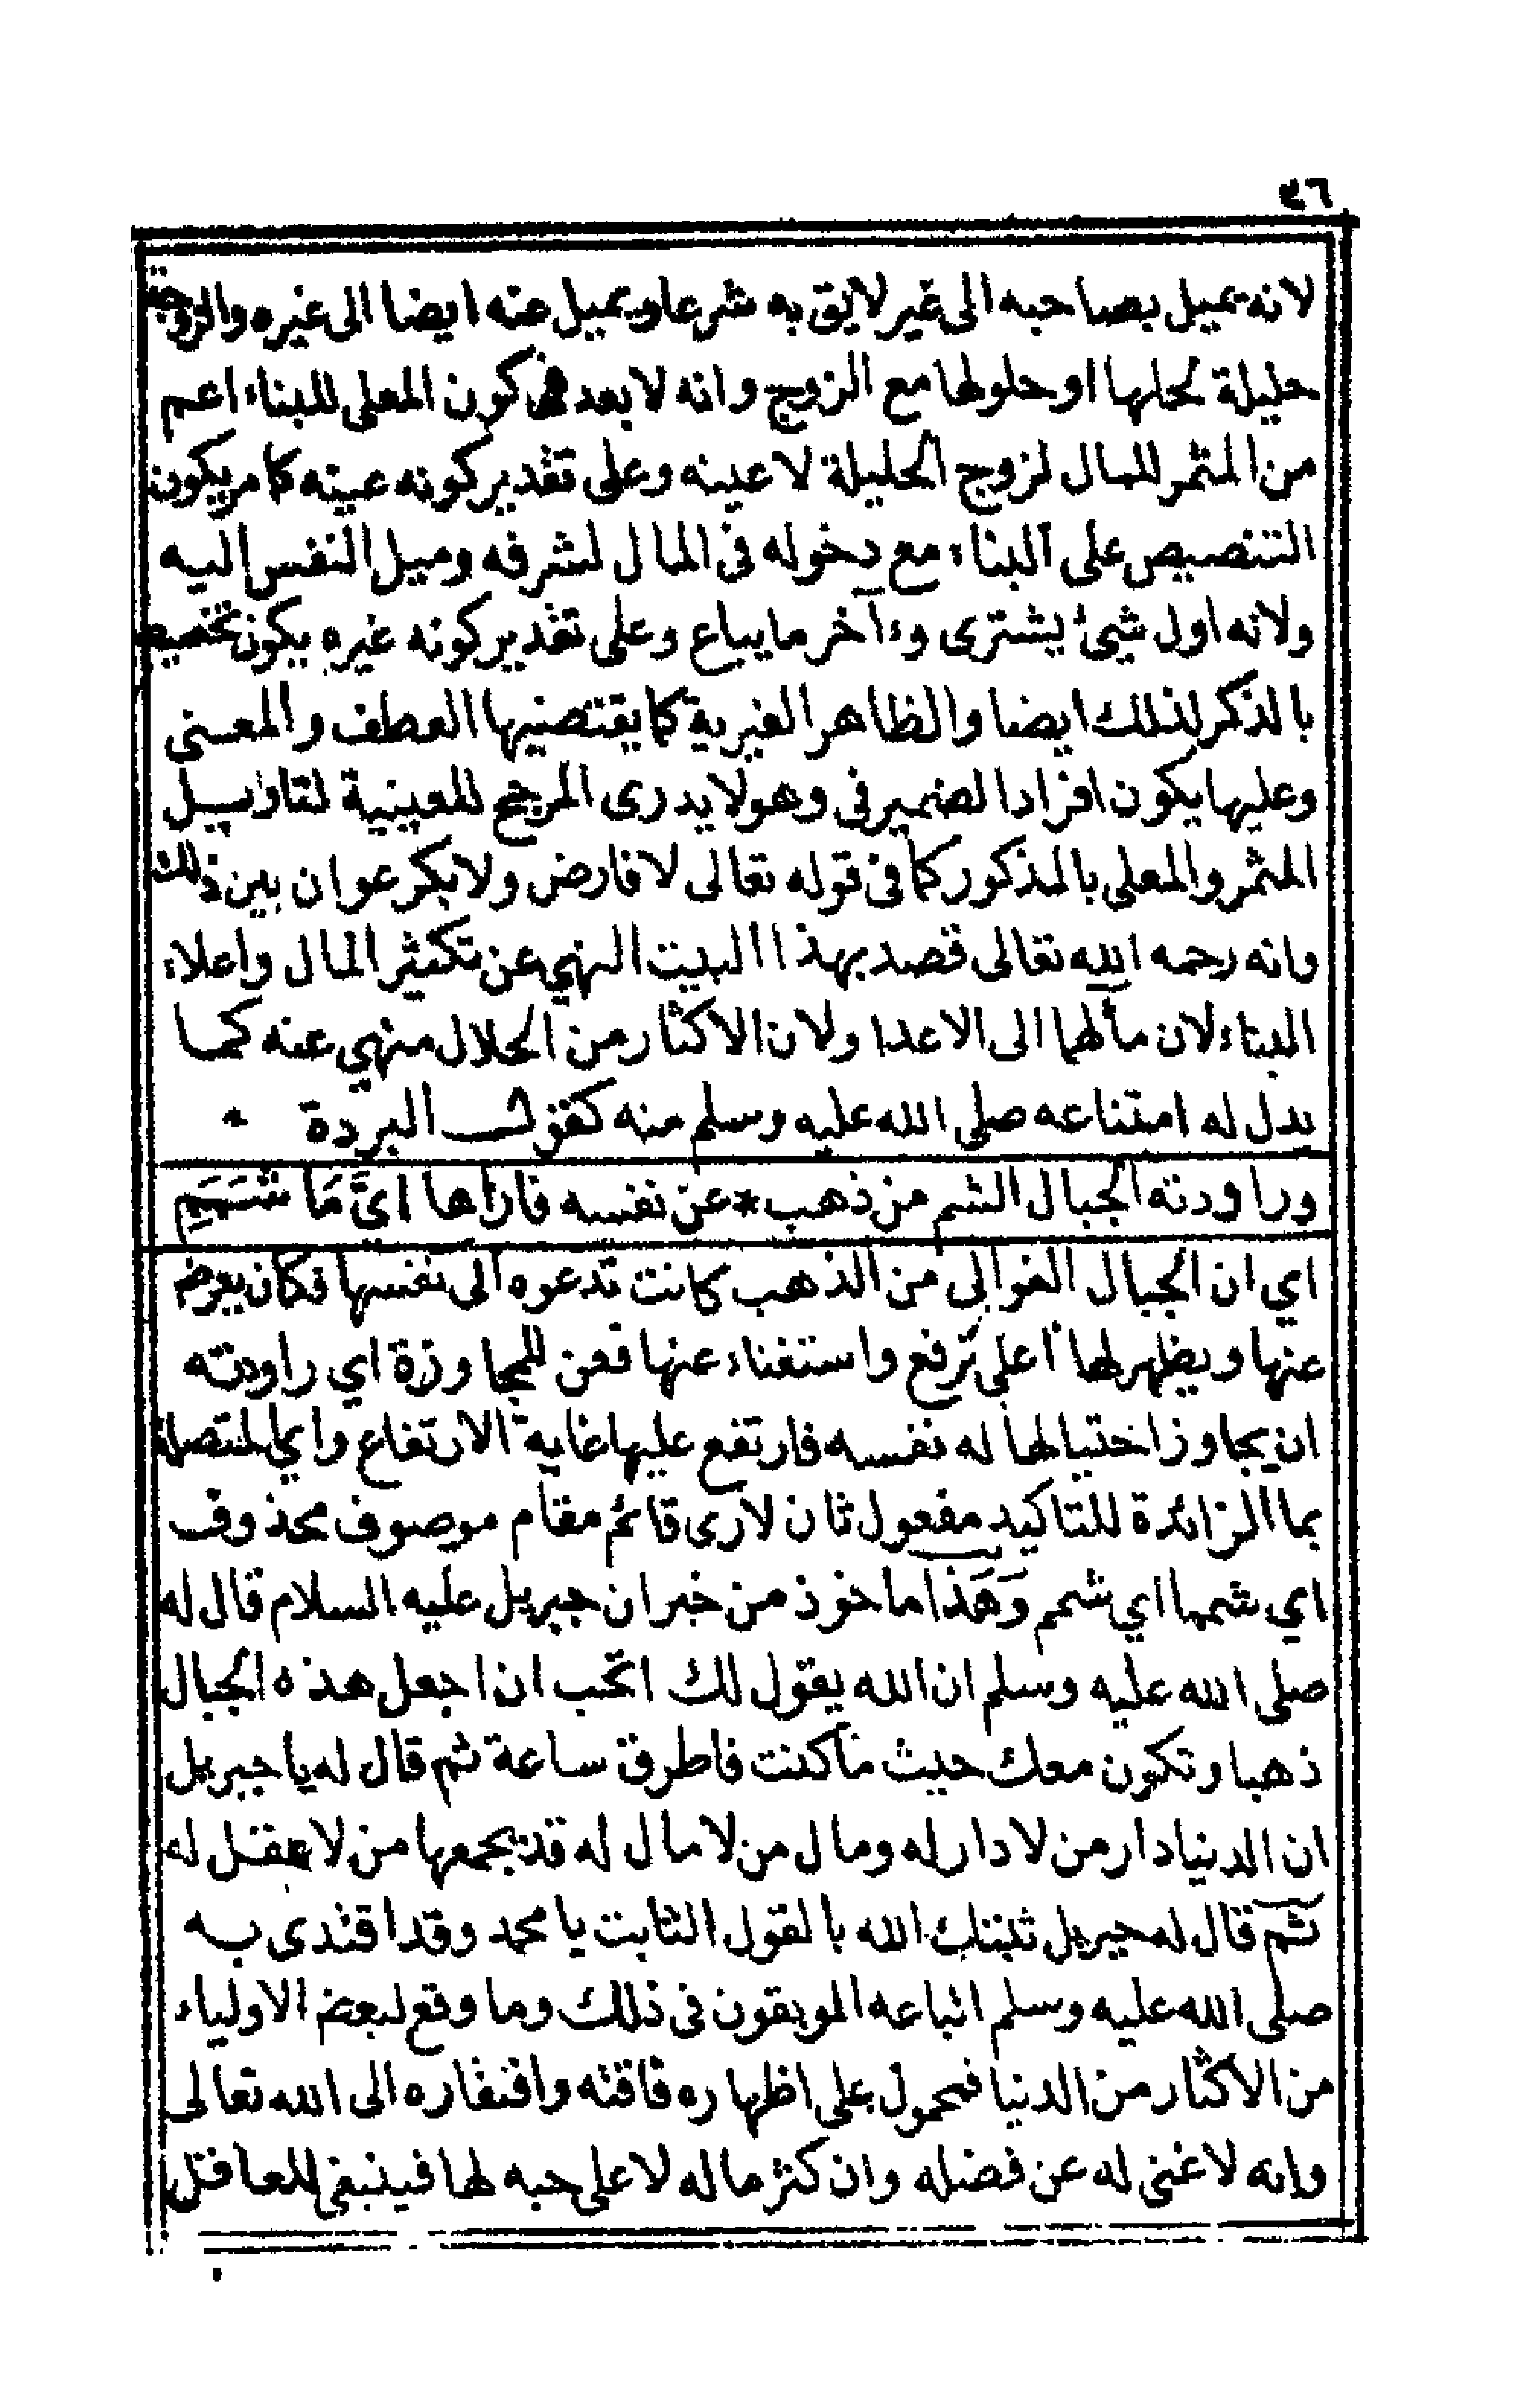 ٤٦
لانه يميل بصاحبه الى غير لايق به شرعا ويميل عنه ايضا الى غيره والزوجة
حليلة لحلها او حلولها مع الزوج وانه لا بعد في كون المعلى للبناء اعم
من المثمر للمال لزوج الحليلة لا عينه وعلى تقدير كونه عينه كما مر يكون
التنصيص على البناء مع دخوله فى المال لشرفه وميل النفس اليه
ولانه اول شيئ يشترى وءاخر ما يباع وعلى تقدير كونه غيره يكون تخصيصه
بالذكر لذلك ايضا والظاهر الغيرية كما يقتضيها العطف والمعنى
وعليها يكون افراد الضمير فى وهو لا يدرى المرجح للعينية لتاويل
المثمر والمعلى بالمذكور كما فى قوله تعالى لا فارض ولا بكر عوان بين ذلك
وانه رحمه الله تعالى قصد بهذا البيت النهي عن تكثير المال واعلاء
البناء لان مألهما الى الاعدا ولان الاكثار من الحلال منهي عنه كما
يدل له امتناعه صلى الله عليه وسلم منه كقول البردة *
وراودته الجبال الشم من ذهب * عن نفسه فاراها ايَّمَا شَمَمِ
اي ان الجبال الغوالى من الذهب كانت تدعوه الى نفسها فكان يعرض
عنها ويظهر لها اعلى ترفع واستغناء عنها فعن للمجاوزة اي راودته
ان يجاوز اختيالها له نفسه فارتفع عليها غاية الارتفاع واي المتصلة
بما الزائدة للتاكيد مفعول ثان لارى قائم مقام موصوف محذوف
اي شمما اي شمم وهذا ماخوذ من خبر ان جبريل عليه السلام قال له
صلى الله عليه وسلم ان الله يقول لك اتحب ان اجعل هذه الجبال
ذهبا وتكون معك حيث ما كنت فاطرق ساعة ثم قال له يا جبريل
ان الدنيا دار من لا دار له ومال من لا مال له قد يجمعها من لا عقل له
ثم قال له جبريل ثبتك الله بالقول الثابت يا محمد وقد اقتدى به
صلى الله عليه وسلم اتباعه الموبقون فى ذلك وما وقع لبعض الاولياء
من الاكثار من الدنيا فمحمول على اظهاره فاقته وافتقاره الى الله تعالى
وانه لا غنى له عن فضله وان كثر ماله لا على حبه لها فينبغى للعاقل